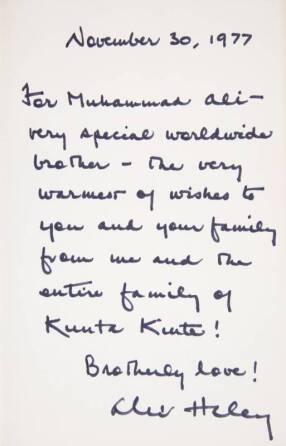 November 30, 1977
For Muhammad Ali—
very special worldwide
brother — the very
warmest of wishes to
you and your family
from me and the
entire family of
Kunta Kinte!
Brotherly love!
Alex Haley